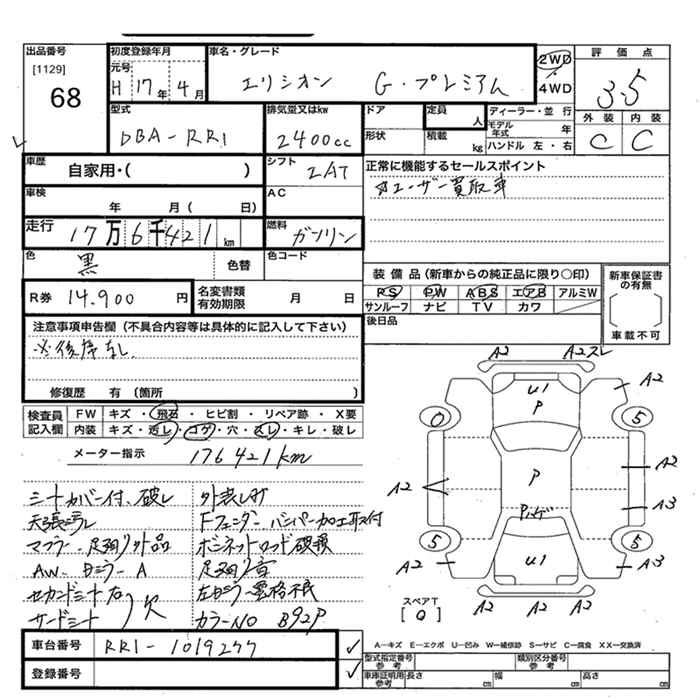 出品番号
[1129]
68
初度登録年月
元号
H 17年 4月
車名・グレード
エリシオン G・プレミアム
2WD
4WD
評価点
3.5
外装 内装
C C
型式
DBA-RR1
排気量又はkw
2400cc
ドア
形状
定員
人
積載
kg
ディーラー・並行
モデル年式 年
ハンドル 左・右
車歴
自家用・( )
シフト
IAT
車検
年 月( 日)
AC
正常に機能するセールスポイント
☆ユーザー買取車
走行
17万6千421km
燃料
ガソリン
色
黒
色替
色コード
R券 14.900 円
名変書類有効期限 月 日
装備品(新車からの純正品に限り○印)
PS PW ABS エアB アルミW
サンルーフ ナビ TV カワ
新車保証書の有無
車載不可
後日品
注意事項申告欄(不具合内容等は具体的に記入して下さい)
※後席なし
修復歴 有(箇所 )
検査員記入欄
FW キズ・飛石・ヒビ割・リペア跡・X要
内装 キズ・汚レ・コゲ・穴・スレ・キレ・破レ
メーター指示
176421km
シートカバー付、破レ
天張ミラレ
マフラー・足廻り外品
AW、ドミラーA
セカンドシート右
サードシート
欠
外装しみ
Fフェンダー バンパー加工取付
ボンネットロッド破損
足廻り音
左ドミラー電格不良
カラーNO B92P
A2 A2スレ
U1
P
A2
0
5
P
A2
A2
A3
Pハゲ
5
5
A2
A3
U1
スペアT
[0]
A2 A2 A2
車台番号
RR1-1019277
登録番号
A―キズ E―エクボ U―凹み W―補修跡 S―サビ C―腐食 XX―交換済
型式指定番号参考
類別区分番号参考
車庫証明用参考 長さ cm 幅 cm 高さ cm